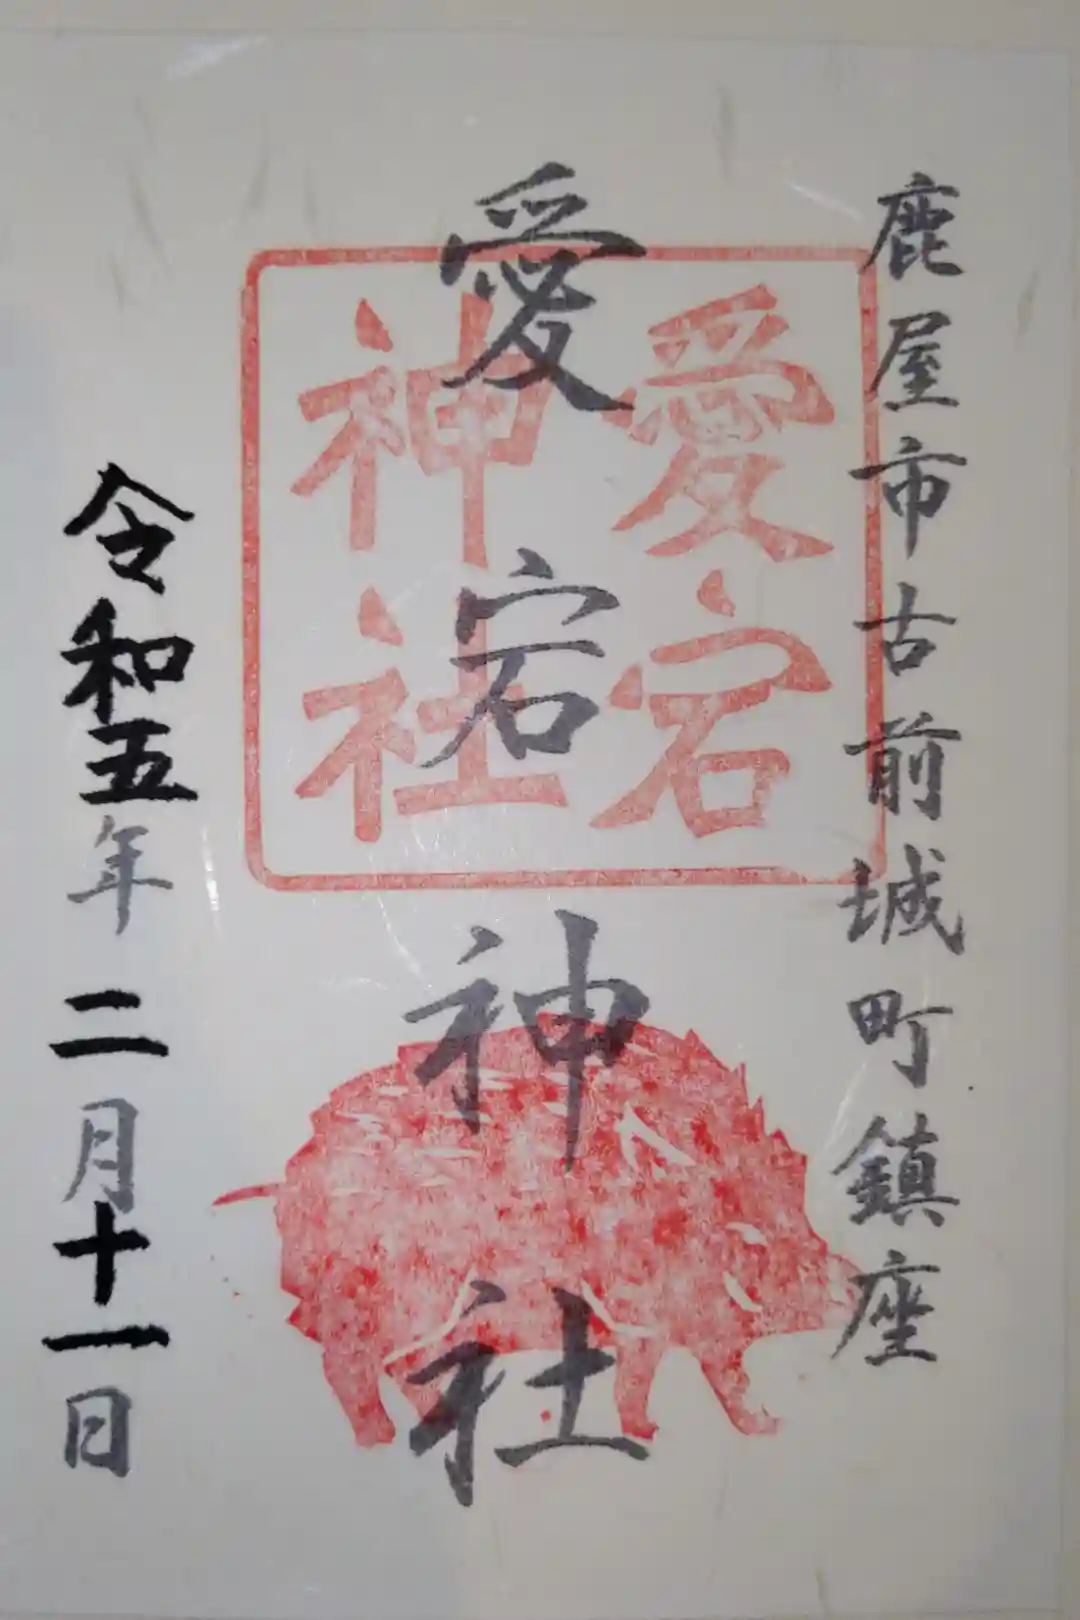 鹿屋市古前城町鎮座
愛宕神社
愛宕
神社
令和五年二月十一日